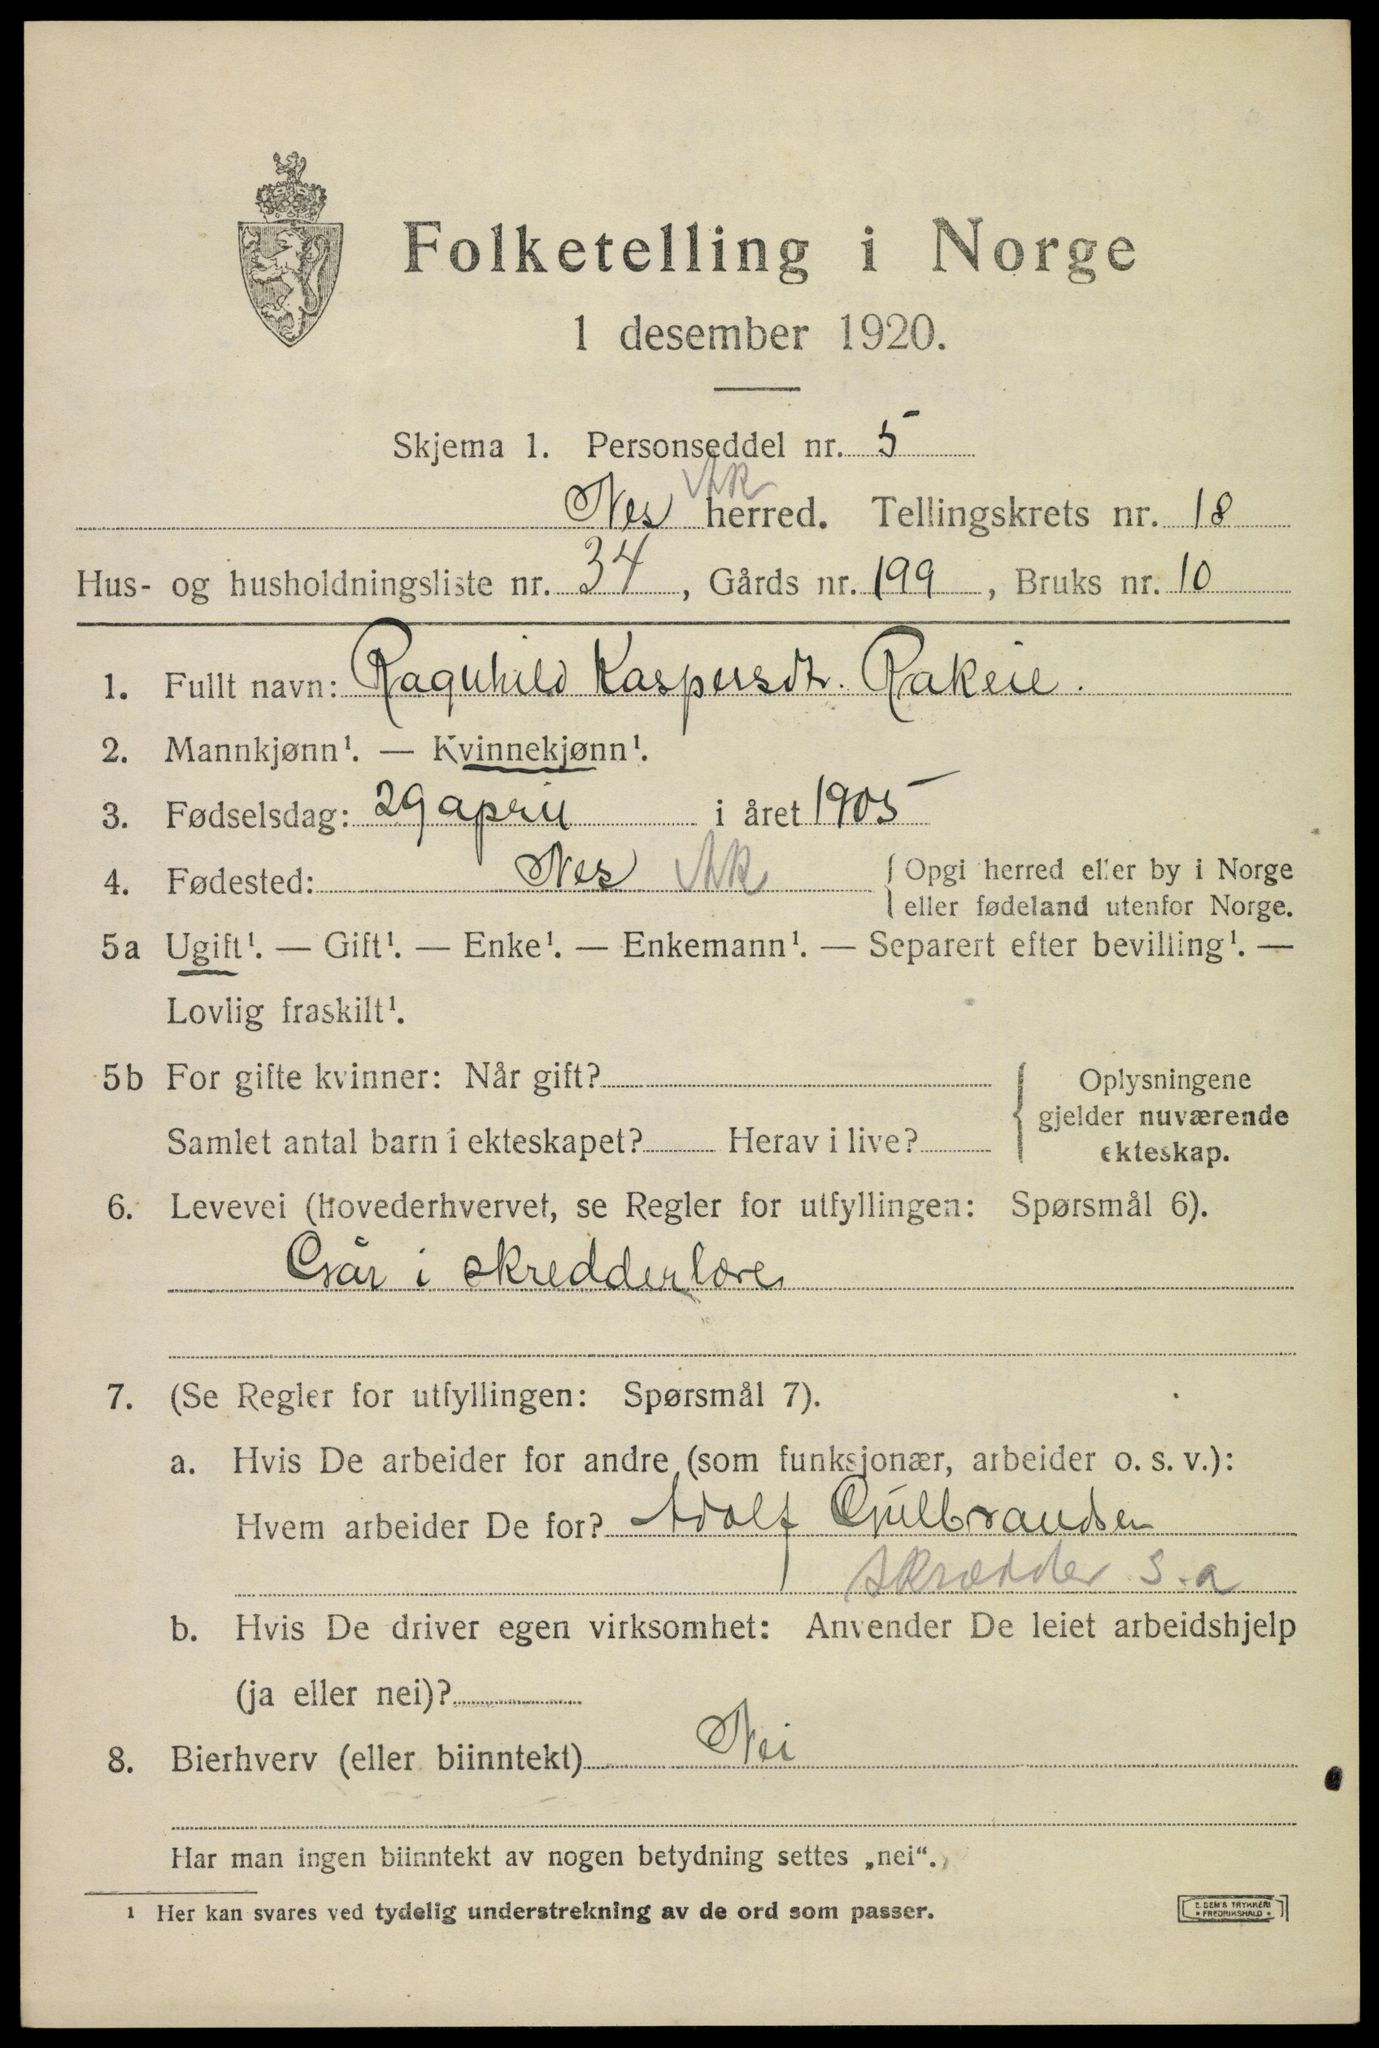 Folketelling i Norge
1 desember 1920.
Skjema 1. Personseddel nr. 5
Nes Ak herred. Tellingskrets nr. 18
Hus- og husholdningsliste nr. 34, Gårds nr. 199, Bruks nr. 10
1. Fullt navn: Ragnhild Kaspersdtr. Rakeie.
2. Mannkjønn¹. — Kvinnekjønn¹.
3. Fødselsdag: 29 april i året 1905
4. Fødested: Nes Ak { Opgi herred eller by i Norge
eller fødeland utenfor Norge.
5a Ugift¹. — Gift¹. — Enke¹. — Enkemann¹. — Separert efter bevilling¹. —
Lovlig fraskilt¹.
5b For gifte kvinner: Når gift?
Samlet antal barn i ekteskapet? Herav i live?
{ Oplysningene
gjelder nuværende
ekteskap.
6. Levevei (hovederhvervet, se Regler for utfyllingen: Spørsmål 6).
Går i skredderlære
7. (Se Regler for utfyllingen: Spørsmål 7).
a. Hvis De arbeider for andre (som funksjonær, arbeider o. s. v.):
Hvem arbeider De for? Adolf Gulbrandsen
skrædder s.a
b. Hvis De driver egen virksomhet: Anvender De leiet arbeidshjelp
(ja eller nei)?
8. Bierhverv (eller biinntekt) Nei
Har man ingen biinntekt av nogen betydning settes „nei“.
¹ Her kan svares ved tydelig understrekning av de ord som passer.
E. SEM'S TRYKKERI
FREDRIKSHALD